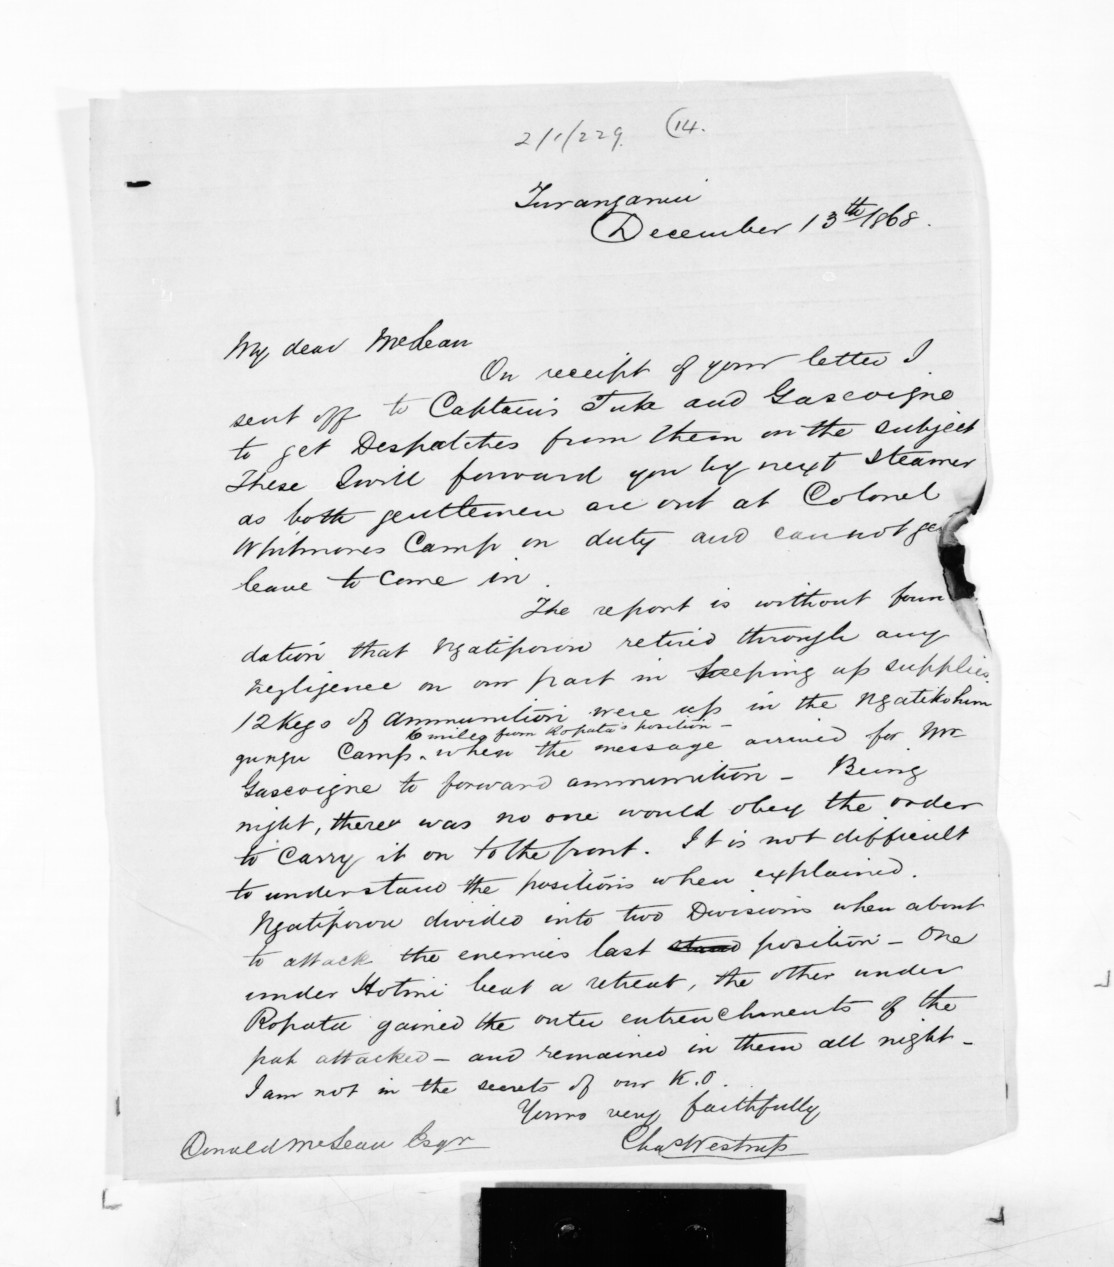 2/1/229. (14.
Turanganui
December 13th 1868.
My dear McLean
On receipt of your letter I
sent off to Captains Tuke and Gascoigne
to get Despatches from them on the subject
These I will forward you by next Steamer
as both gentlemen are out at Colonel
Whitmores Camp on duty and cannot ge
leave to come in.
The report is without foun
dation that Ngatiporou retired through any
negligence on our part in keeping up supplies.
12 Kegs of ammunition were up in the Ngatikohun
6 miles from Ropata's position -
gungu Camp. when the message arrived for Mr
Gascoigne to forward ammunition - Being
night, there was no one would obey the order
to carry it on to the front. It is not difficult
to understand the positions when explained.
Ngatiporou divided into two Divisions when about
to attack the enemies last stand position - One
under Hotini beat a retreat, the other under
Ropata gained the outer entrenchments of the
pah attacked - and remained in them all night -
I am not in the secrets of our K.O.
Yours very faithfully
Chas Westrup
Donald McLean Esqr